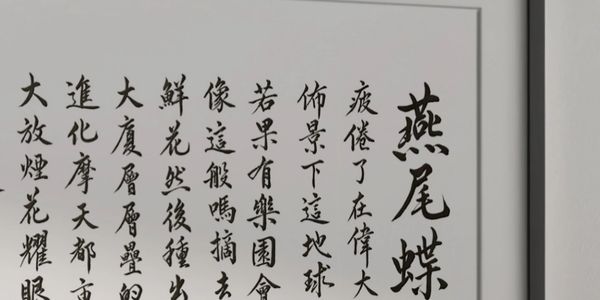 燕尾蝶
疲倦了在偉大
佈景下這地球
若果有樂園會
像這般嗎摘去
鮮花然後種出
大廈層層疊的
進化摩天都市
大放煙花耀眼